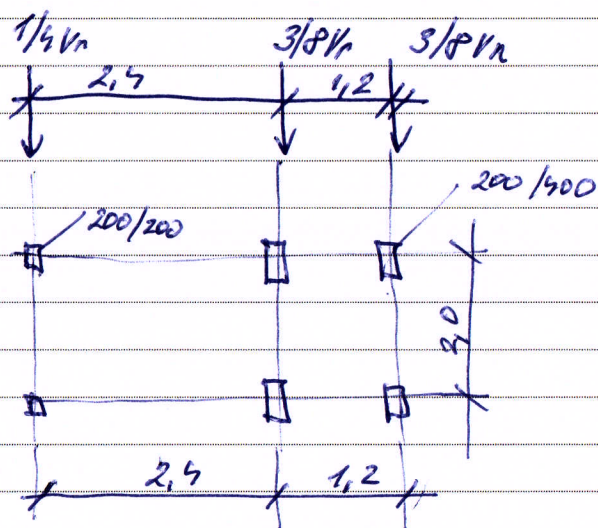 1/4Vn 3/8Vn 3/8Vn
2,4 1,2
200/400
200/200
2,0
2,4 1,2